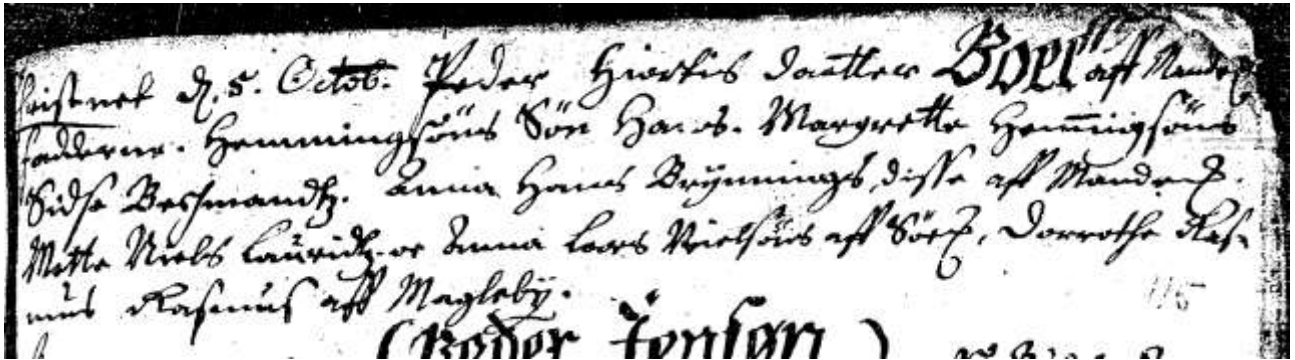 Christnet d. 5. Octob. Peder Hiortis Daatter Boel aff Mandem
fadderne. Hemmingsöns Sön Hans. Margrette Hemmingsöns
Sidse Beshmandtz. Anna Hans Brÿnnings, disse aff Mandem.
Mette Niels Lauridtz. oc Anna Lars Nielsöns aff Söem, Dorrothe Ras-
mus Rasmus aff Maglebÿ.
(Peder Jensøn)